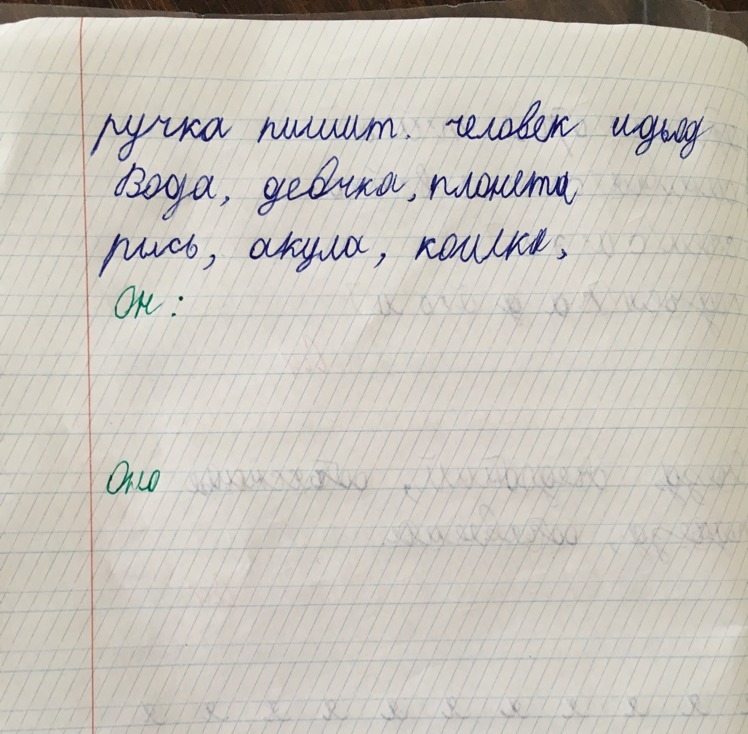 ручка пишит. человек идьод
Вода, девчка, планета
рись, акула, кошка,
Он:
Оно